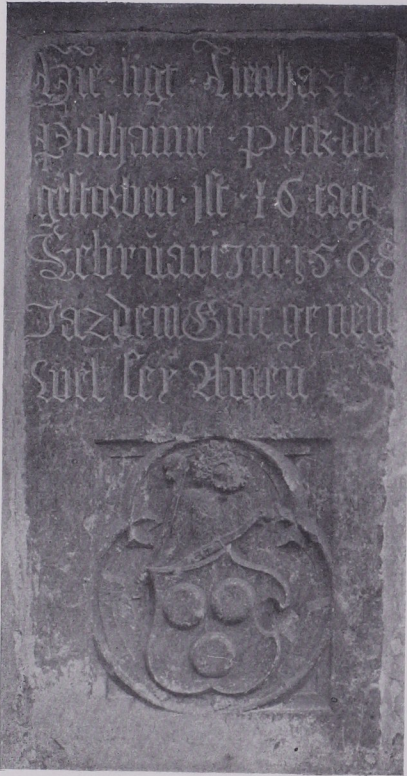 Hie · ligt · Lienhart ·
Polhamer · peck · der
gestorben · ist · 16 · tag
Februari Im · 156·8
Jar dem Gott genedi
wel sey Amen